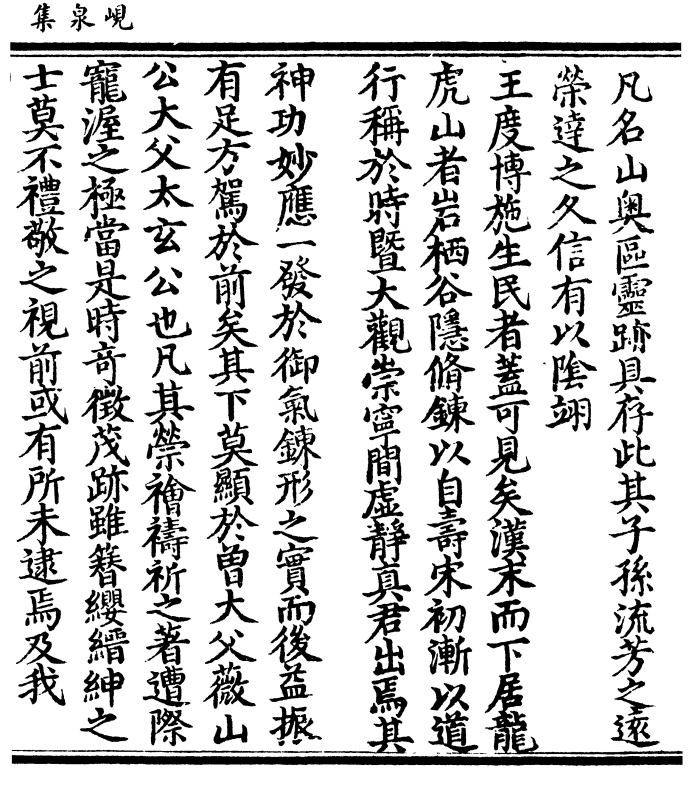 峴泉集
凡名山奧區靈跡具存此其子孫流芳之遠
榮達之久信有以陰翊
王度博施生民者蓋可見矣漢末而下居龍
虎山者岩栖谷隱脩鍊以自壽宋初漸以道
行稱於時暨大觀崇寧間虛靜真君出焉其
神功妙應一發於御氣鍊形之實而後益振
有足方駕於前矣其下莫顯於曾大父薇山
公大父太玄公也凡其禜禬禱祈之著遭際
寵渥之極當是時奇徵茂跡雖簪纓縉紳之
士莫不禮敬之視前或有所未逮焉及我